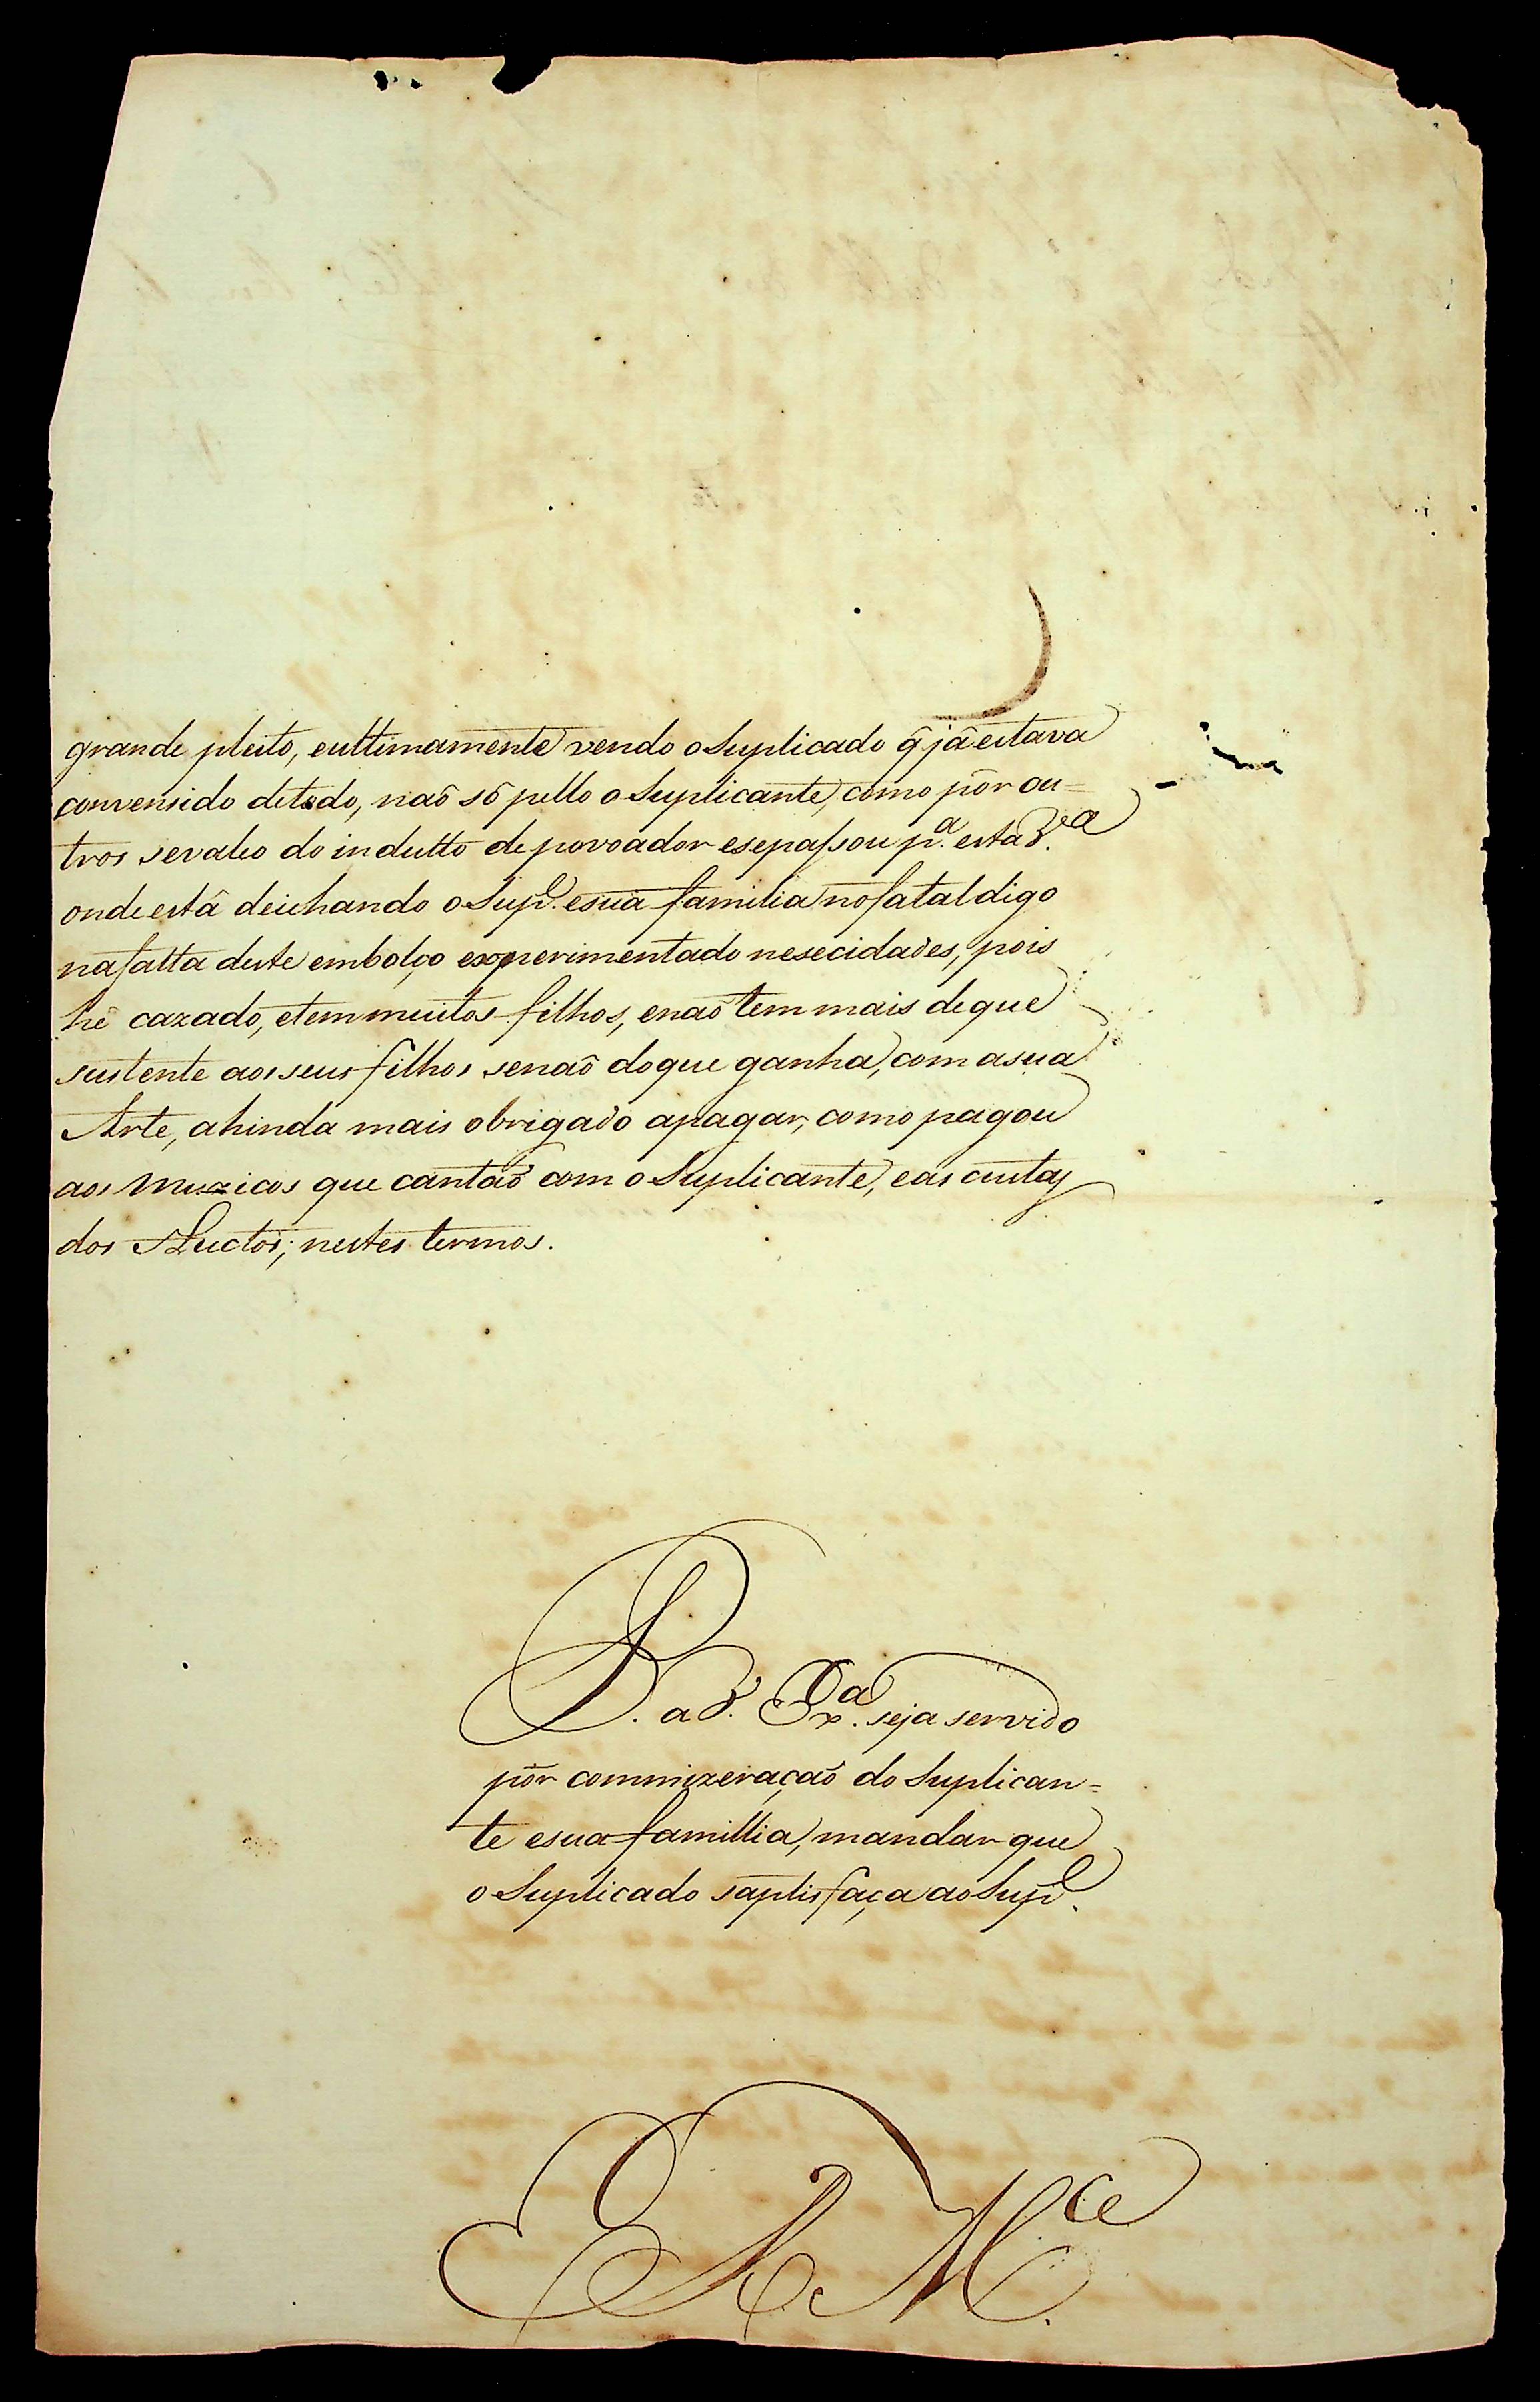 grande pleito, eulttimamente vendo o Suplicado q̃ jâ estava
convensido detodo, naõ sô pello o Suplicante, como pôr ou=
tros sevaleo do indultto de povoador esepassou p.ª esta V.ª
onde estâ deichando o Sup.e esua familia no fatal digo
nafalta deste embolço experimentado nesecidades, pois
hê cazado, etem muitos filhos, enaõ tem mais deque
sustente aos seus filhos senaõ doque ganha, com asua
Arte, ahinda mais obrigado apagar, como pagou
aos Muzicos que cantaõ com o Suplicante, eas custas
dos Auctos; nestes termos.
P. a V. Ex.ª seja servido
pôr commizeraçaõ do Suplican=
te esua famillia, mandar que
o Suplicado saptisfaça ao Sup.e
E R M.ce